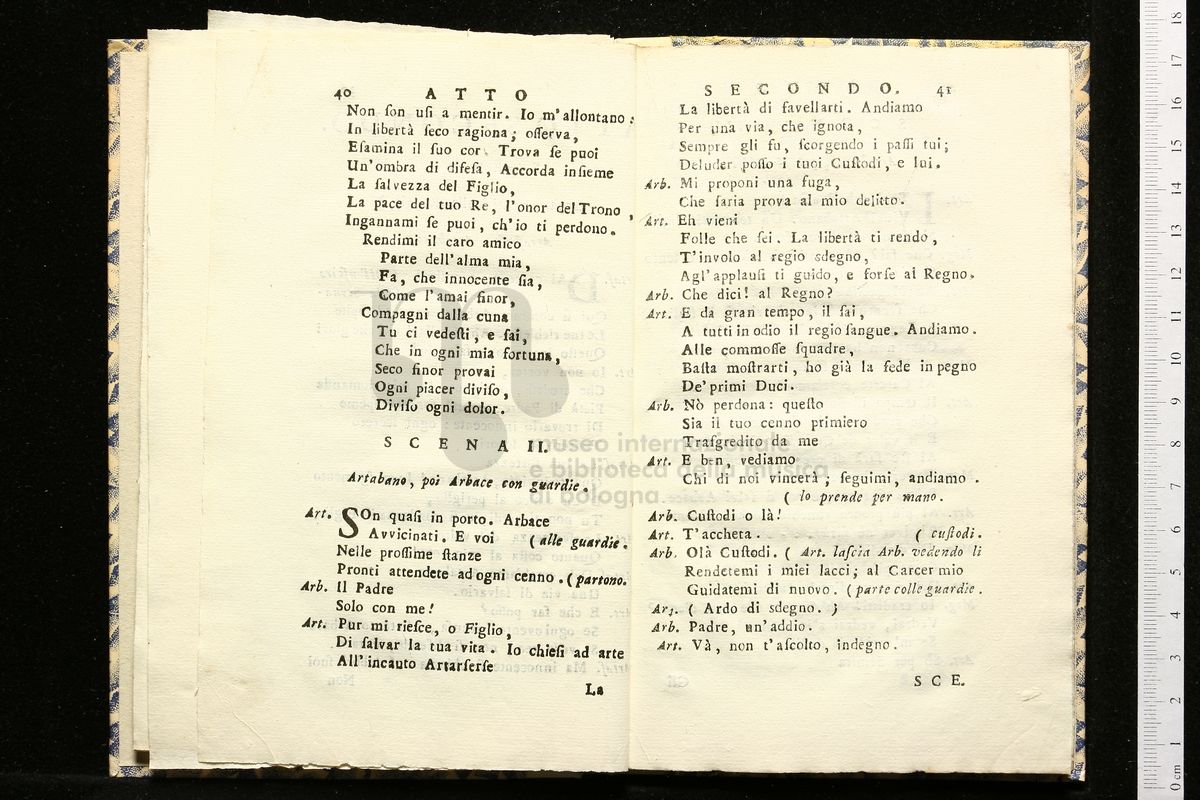 40 ATTO
Non ſon uſi a mentir. Io m'allontano:
In libertà ſeco ragiona; oſſerva,
Eſamina il ſuo cor. Trova ſe puoi
Un'ombra di difeſa, Accorda inſieme
La ſalvezza del Figlio,
La pace del tuo Re, l'onor del Trono,
Ingannami ſe puoi, ch'io ti perdono.
Rendimi il caro amico
Parte dell'alma mia,
Fa, che innocente ſia,
Come l'amai ſinor,
Compagni dalla cuna
Tu ci vedeſti, e ſai,
Che in ogni mia fortuna,
Seco ſinor provai
Ogni piacer diviſo,
Diviſo ogni dolor.
SCENA II.
Artabano, poi Arbace con guardie.
Art. SOn quaſi in porto. Arbace
Avvicinati. E voi (alle guardie.
Nelle proſſime ſtanze
Pronti attendete ad ogni cenno. (partono.
Arb. Il Padre
Solo con me!
Art. Pur mi rieſce, o Figlio,
Di ſalvar la tua vita. Io chieſi ad arte
All'incauto Artarſerſe
La
SECONDO. 41
La libertà di favellarti. Andiamo
Per una via, che ignota,
Sempre gli fu, ſcorgendo i paſſi tui;
Deluder poſſo i tuoi Cuſtodi, e lui.
Arb. Mi proponi una fuga,
Che ſaria prova al mio delitto.
Art. Eh vieni
Folle che ſei. La libertà ti rendo,
T'involo al regio sdegno,
Agl'applauſi ti guido, e forſe al Regno.
Arb. Che dici! al Regno?
Art. E da gran tempo, il ſai,
A tutti in odio il regio ſangue. Andiamo.
Alle commoſſe ſquadre,
Baſta moſtrarti, ho già la fede in pegno
De' primi Duci.
Arb. Nò perdona: queſto
Sia il tuo cenno primiero
Traſgredito da me
Art. E ben, vediamo
Chi di noi vincerà; ſeguimi, andiamo.
(lo prende per mano.
Arb. Cuſtodi o là!
Art. T'accheta. (cuſtodi.
Arb. Olà Cuſtodi. (Art. laſcia Arb. vedendo li
Rendetemi i miei lacci; al Carcer mio
Guidatemi di nuovo. (parte colle guardie.
Art. (Ardo di sdegno.)
Arb. Padre, un'addio.
Art. Và, non t'aſcolto, indegno.
SCE.
museo internazionale
e biblioteca della musica
di bologna